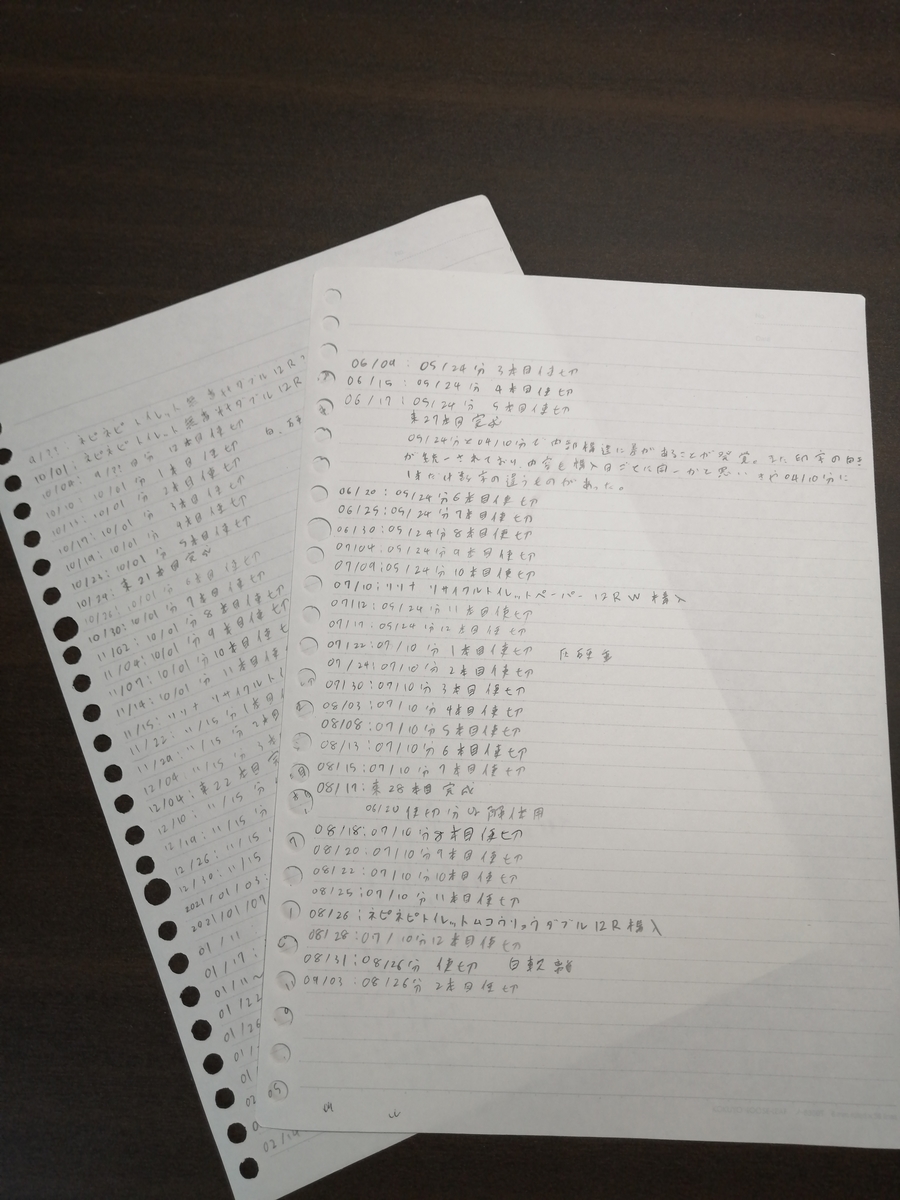 9/??: ネピネピトイレット無香料ダブル12R
10/01: ネピネピトイレット無香料ダブル12R
10/08: 9/??分 12本目使切
10/10: 10/01分 1本目使切
10/11: 10/01分 2本目使切
10/17: 10/01分 3本目使切
10/19: 10/01分 4本目使切
10/22: 10/01分 5本目使切
10/24: 第21本目完成
10/26: 10/01分 6本目使切
10/30: 10/01分 7本目使切
11/02: 10/01分 8本目使切
11/04: 10/01分 9本目使
11/07: 10/01分 10本目使
11/14: 10/01分 11本目使
11/15: リソナ リサイクルトイ
11/22: 11/15分 1本目
11/29: 11/15分 2本目
12/04: 11/15分 3本
12/04: 第22本目完
12/10: 11/15分
12/19: 11/15分
12/26: 11/15
12/30: 11/15
2021/01/03:
2021/01/07
01/11
01/17:
01/22
01/26
06/09: 05/24分 3本目使切
06/15: 05/24分 4本目使切
06/17: 05/24分 5本目使切
第27本目完成
05/24分と04/10分で内部構造に差があることが発覚。また印字の向き
が統一されており、内容も購入日ごとに同一かと思いきや04/10分に
1本だけ数字の違うものがあった。
06/20: 05/24分6本目使切
06/25: 05/24分7本目使切
06/30: 05/24分8本目使切
07/04: 05/24分9本目使切
07/09: 05/24分10本目使切
07/10: リソナ リサイクルトイレットペーパー 12RW 購入
07/12: 05/24分11本目使切
07/17: 05/24分12本目使切
07/22: 07/10分 1本目使切
07/24: 07/10分 2本目使切
07/30: 07/10分 3本目使切
08/03: 07/10分 4本目使切
08/08: 07/10分5本目使切
08/13: 07/10分6本目使切
08/15: 07/10分7本目使切
08/17: 第28本目完成
06/20 使切分以降使用
08/18: 07/10分8本目使切
08/20: 07/10分9本目使切
08/22: 07/10分10本目使切
08/25: 07/10分11本目使切
08/26: ネピネピトイレットムコウリョウダブル12R購入
08/28: 07/10分12本目使切
08/31: 08/26分 使切 白軟
09/03: 08/26分 2本目使切